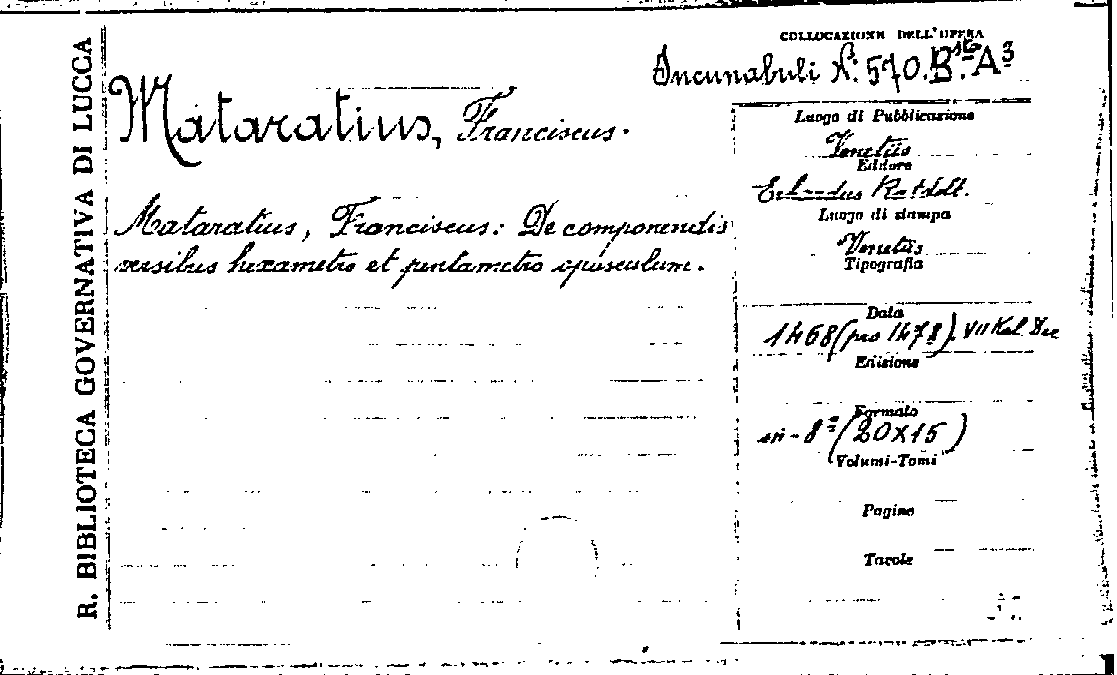 R. BIBLIOTECA GOVERNATIVA DI LUCCA
COLLOCAZIONE DELL'OPERA
Incunabuli N. 570. B.16 A3
Mataratius, Franciscus.
Mataratius, Franciscus: De componendis
versibus hexametro et pentametro opusculum.
Luogo di Pubblicazione
Venetiis
Editore
Erhardus Ratdolt.
Luogo di stampa
Venetiis
Tipografia
Data
1468 (pro 1478). VII Kal. Dec
Edizione
Formato
in-8º (20x15)
Volumi-Tomi
Pagine
Tavole